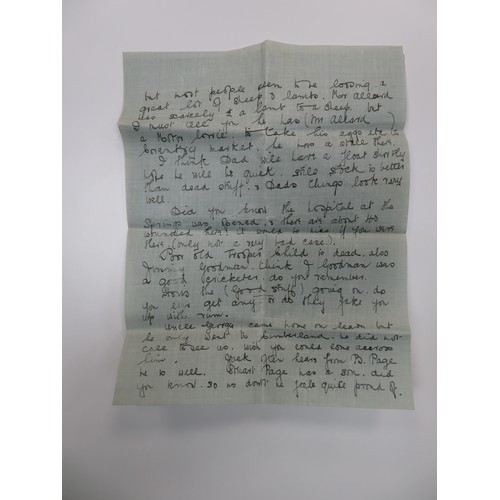 but most people seem to be loosing a
great lot of sheep & lambs. Mr Allard
has scarcely & a lamb to a sheep. but
I must tell you he has (Mr Allard)
a Motor lorrie to take his eggs etc to
Coventry market. he has a stall there.
I think Dad will have a float shortly
hope he will be quick. still stock is better
than dead stuff. & Dads things look very
well.
Did you know the hospital at the
Springs was opened & there are about 40
wounded there it would be nice if you were
there (only not a very bad case).
Poor old Trooper Child is dead. also
Jimmy Goodman. think J Goodman was
a good cricketer do you remember.
Hows the (Good stuff) going on. do
you ever get any or do they fake you
up with rum.
Uncle George came home on leave but
he only went to Cumberland. he did not
come to see us. wish you could come accross
him. Dick often hears from B. Page
he is well. Stuart Page has a son. did
you know. so no doubt he feels quite proud of.